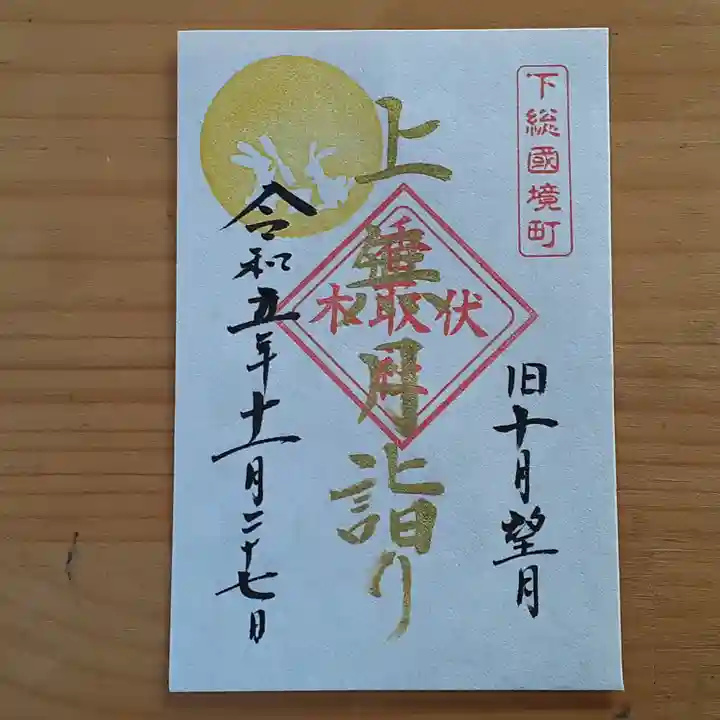 下総國境町
旧十月望月
上無月詣り
伏取木
令和五年十一月二十七日